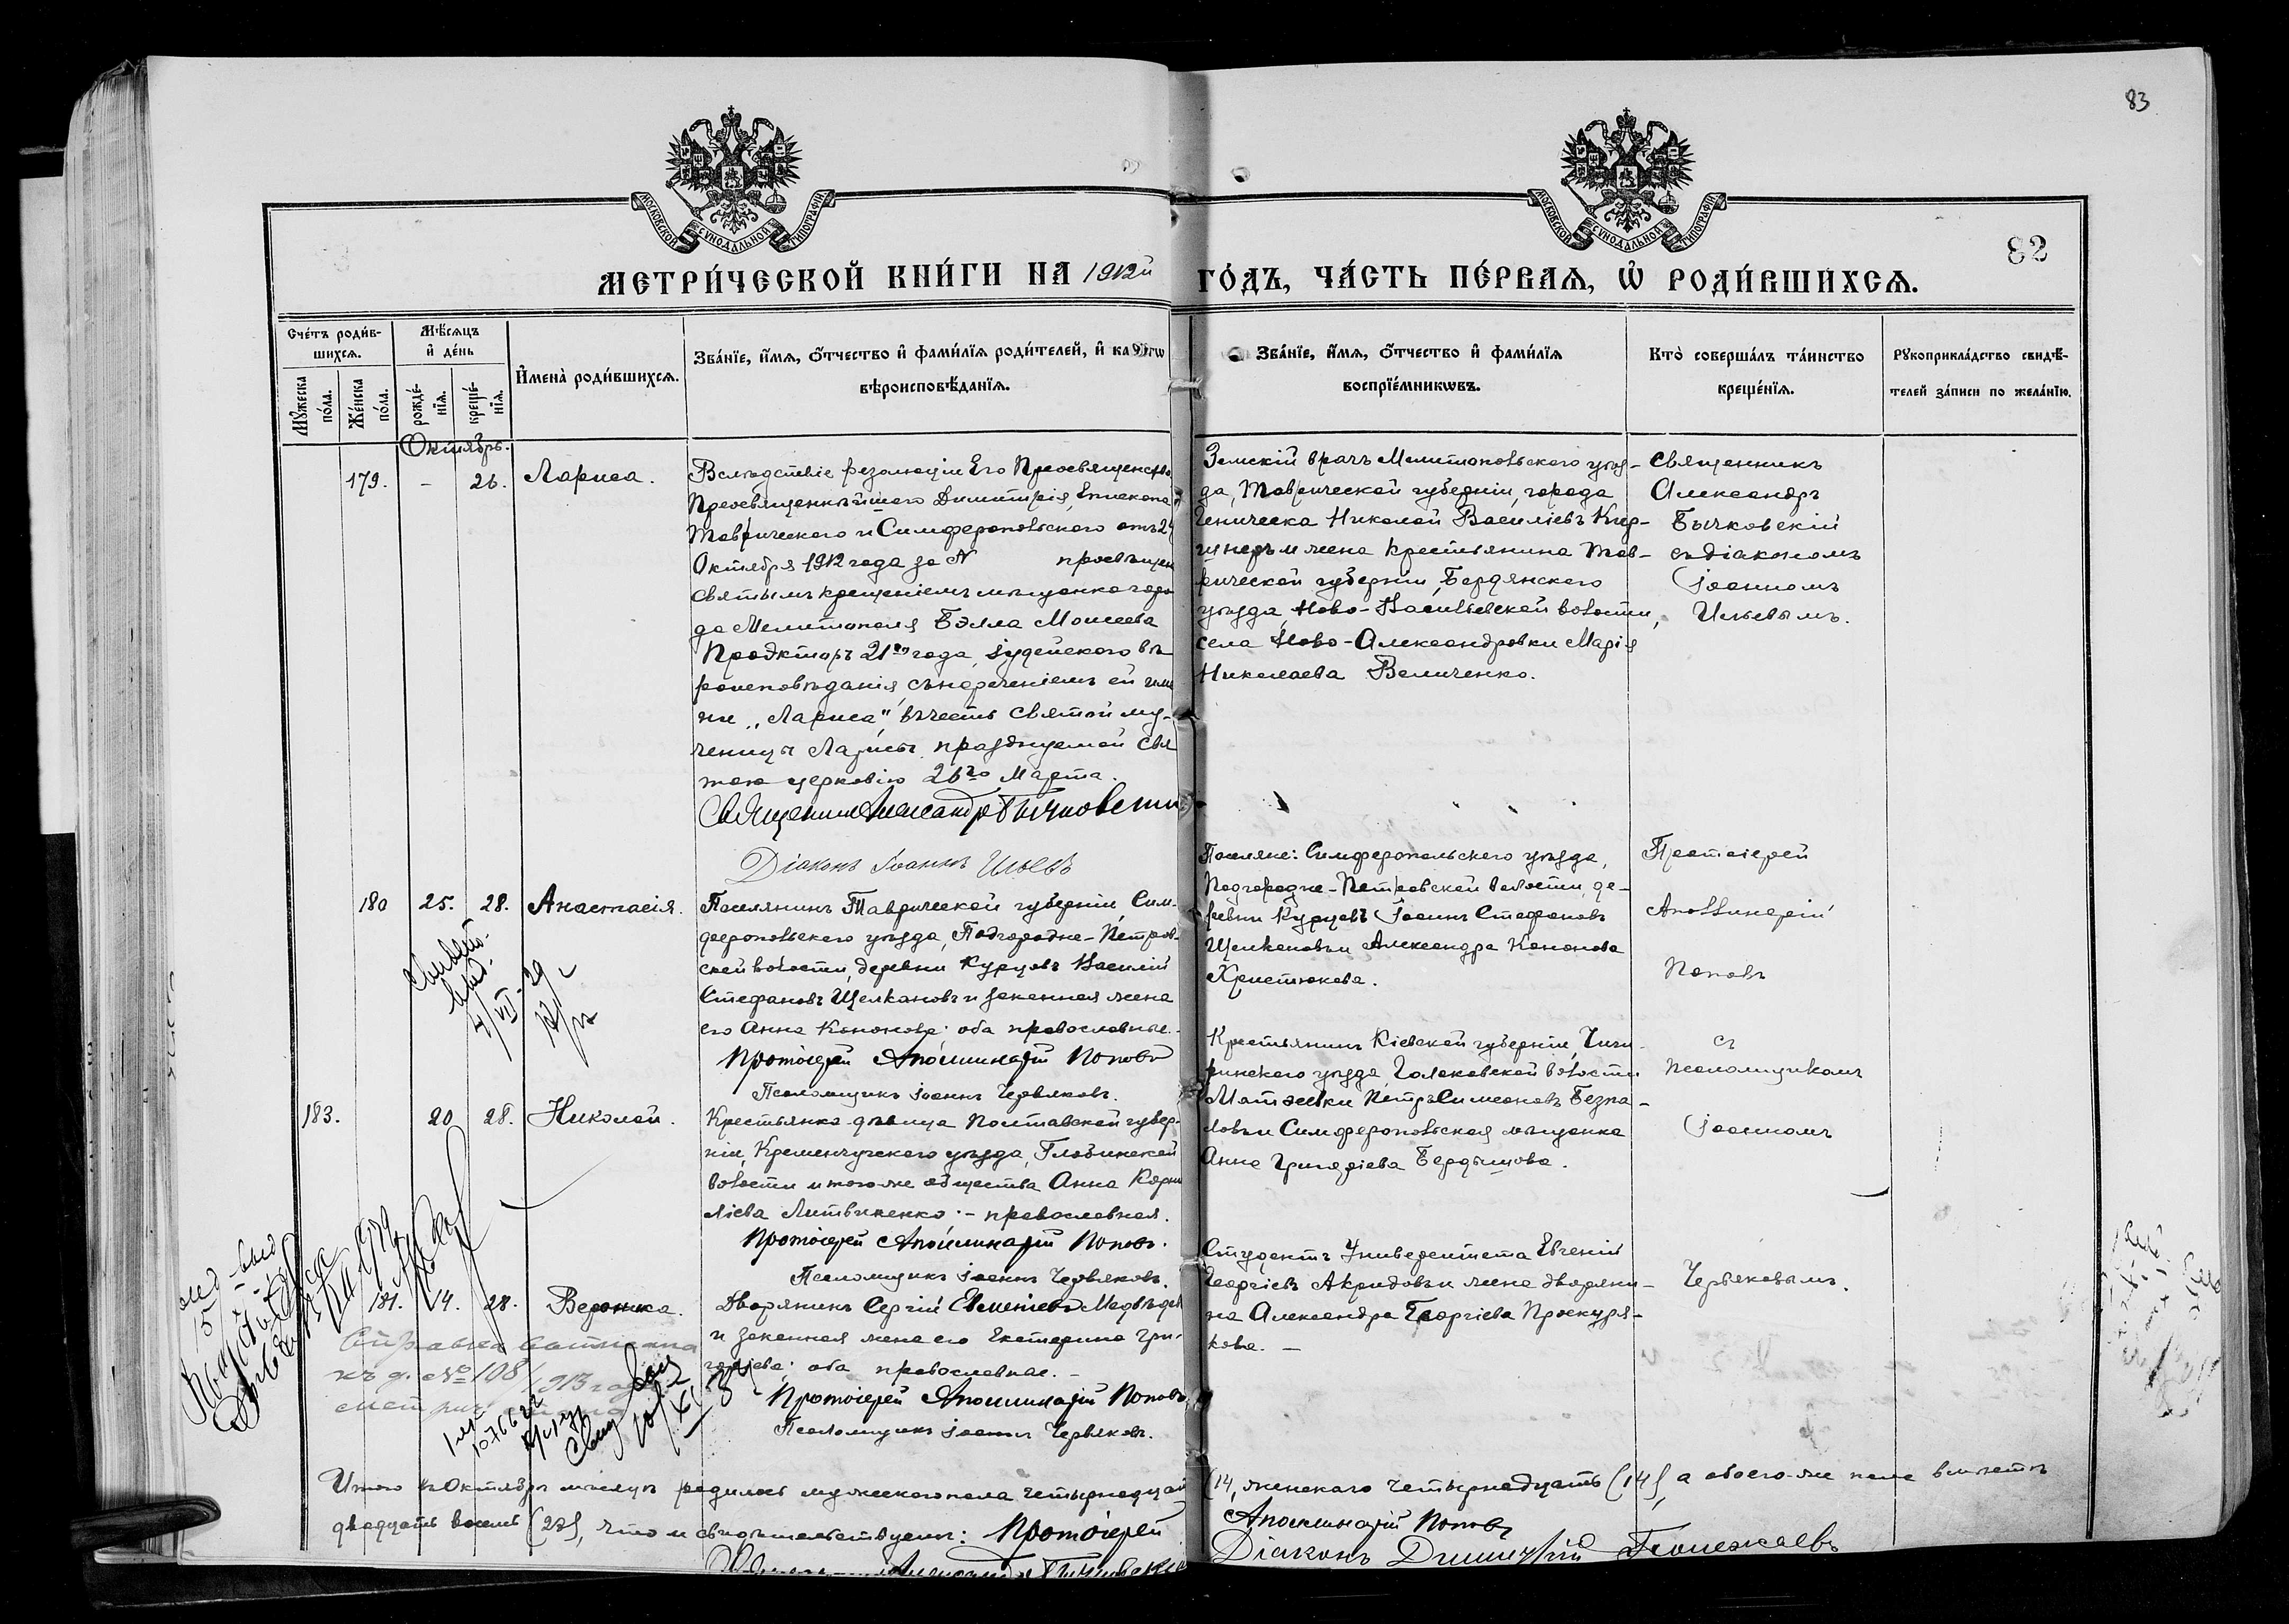 83
МОСКОВСКОЙ СУНОДАЛЬНОЙ ТИПОГРАФІИ
МОСКОВСКОЙ СУНОДАЛЬНОЙ ТИПОГРАФІИ
82
МЕТРИ́ЧЕСКОЙ КНИ́ГИ НА 1912й ГО́ДЪ, ЧА́СТЬ ПЕ́РВАѦ, Ѡ҆ РОДИ́ВШИХСѦ.
Сче́тъ роди́в-
шихсѧ.
Мꙋ́жеска по́ла.
Же́нска по́ла.
Мѣ́сѧцъ
и҆ де́нь
рожде́-
нїѧ.
креще́-
нїѧ.
И҆мена̀ роди́вшихсѧ.
Зва́нїе, и҆́мѧ, ѻ҆́тчество и҆ фами́лїѧ роди́телей, и҆ ка
вѣроисповѣ́данїѧ.
Зва́нїе, и҆́мѧ, ѻ҆́тчество и҆ фами́лїѧ
воспрїе́мникѡвъ.
Кто̀ соверша́лъ та́инство
креще́нїѧ.
Рꙋкоприкла́дство свидѣ́-
телей за́писи по жела́нїю.
Октябрь.
179. - 26. Лариса.
Вслѣдствіе резолюціи Его Преосвященства
Преосвященнѣйшаго Димитрія, Епископа
Таврическаго и Симферопольскаго отъ 24
Октября 1912 года за N просвѣщен
святымъ крещеніемъ мѣщанка горо
да Мелитополя Бэлла Моисеева
Продкторъ 21го года, іудейскаго вѣ
роисповѣданія, съ нареченіемъ ей име
ни „Лариса", въ честь святой му-
ченицы Ларисы, празднуемой свя
тою церковію 26го Марта.
Священникъ Александръ Бычковскій
Діаконъ Іоаннъ Ильевъ
Земскій врачъ Мелитопольскаго уѣз-
да, Таврической губерніи, города
Геническа Николай Василіевъ Кир-
и жена крестьянина Тав-
рической губерніи, Бердянскаго
уѣзда, Ново-Васильевской волости,
села Ново-Александровки Марія
Николаева Величенко.
Священникъ
Александръ
Бычковскій
съ діакономъ
Іоанномъ
Ильевымъ.
180 25. 28. Анастасія.
Поселянинъ Таврической губерніи, Сим-
феропольскаго уѣзда, Подгородне-Петров-
ской волости, деревни Курцовъ Василій
Стефановъ Щелкановъ и законная жена
его Анна Кононова; оба православные.
Протоіерей Аполлинарій Поповъ
Псаломщикъ Іоаннъ Червяковъ.
Поселяне: Симферопольскаго уѣзда,
Подгородне-Петровской волости, де-
ревни Курцовъ Іоаннъ Стефановъ
Щелкановъ и Александра Кононова
Христюкова.
Протоіерей
Аполлинарій
Поповъ
съ
псаломщикомъ
Іоанномъ
Червяковымъ.
183. 20 28. Николай.
Крестьянка-дѣвица Полтавской губер-
ніи, Кременчугскаго уѣзда, Глобинской
волости и того-же общества Анна Корни
ліева Литвиненко. - православная.
Протоіерей Аполлинарій Поповъ.
Псаломщикъ Іоаннъ Червяковъ.
Крестьянинъ Кіевской губерніи, Чиги-
ринскаго уѣзда, волости
Матвеевки Петръ Симеоновъ Безпа-
ловъ и Симферопольская мѣщанка
Анна Григоріева Бердышова.
181. 14. 28. Вероника.
Дворянинъ Сергій Евменіевъ Медвѣдев
и законная жена его Екатерина Гри-
горіева; оба православные. -
Протоіерей Аполлинарій Поповъ
Псаломщикъ Іоаннъ Червяковъ.
Студентъ Университета Евгеній
Георгіевъ Акридовъ и жена дворяни-
на Александра Георгіева Проскуря-
кова. -
Справка
къ д. № 108/1913 года
Итого въ Октябрѣ мѣсяцѣ родилось мужескаго пола четырнадцать (14, женскаго четырнадцать (14), а обоего-же пола вмѣстѣ
двадцать восемь (28), что и свидѣтельствуемъ: Протоіерей Аполлинарій Поповъ
Діаконъ Димитрій